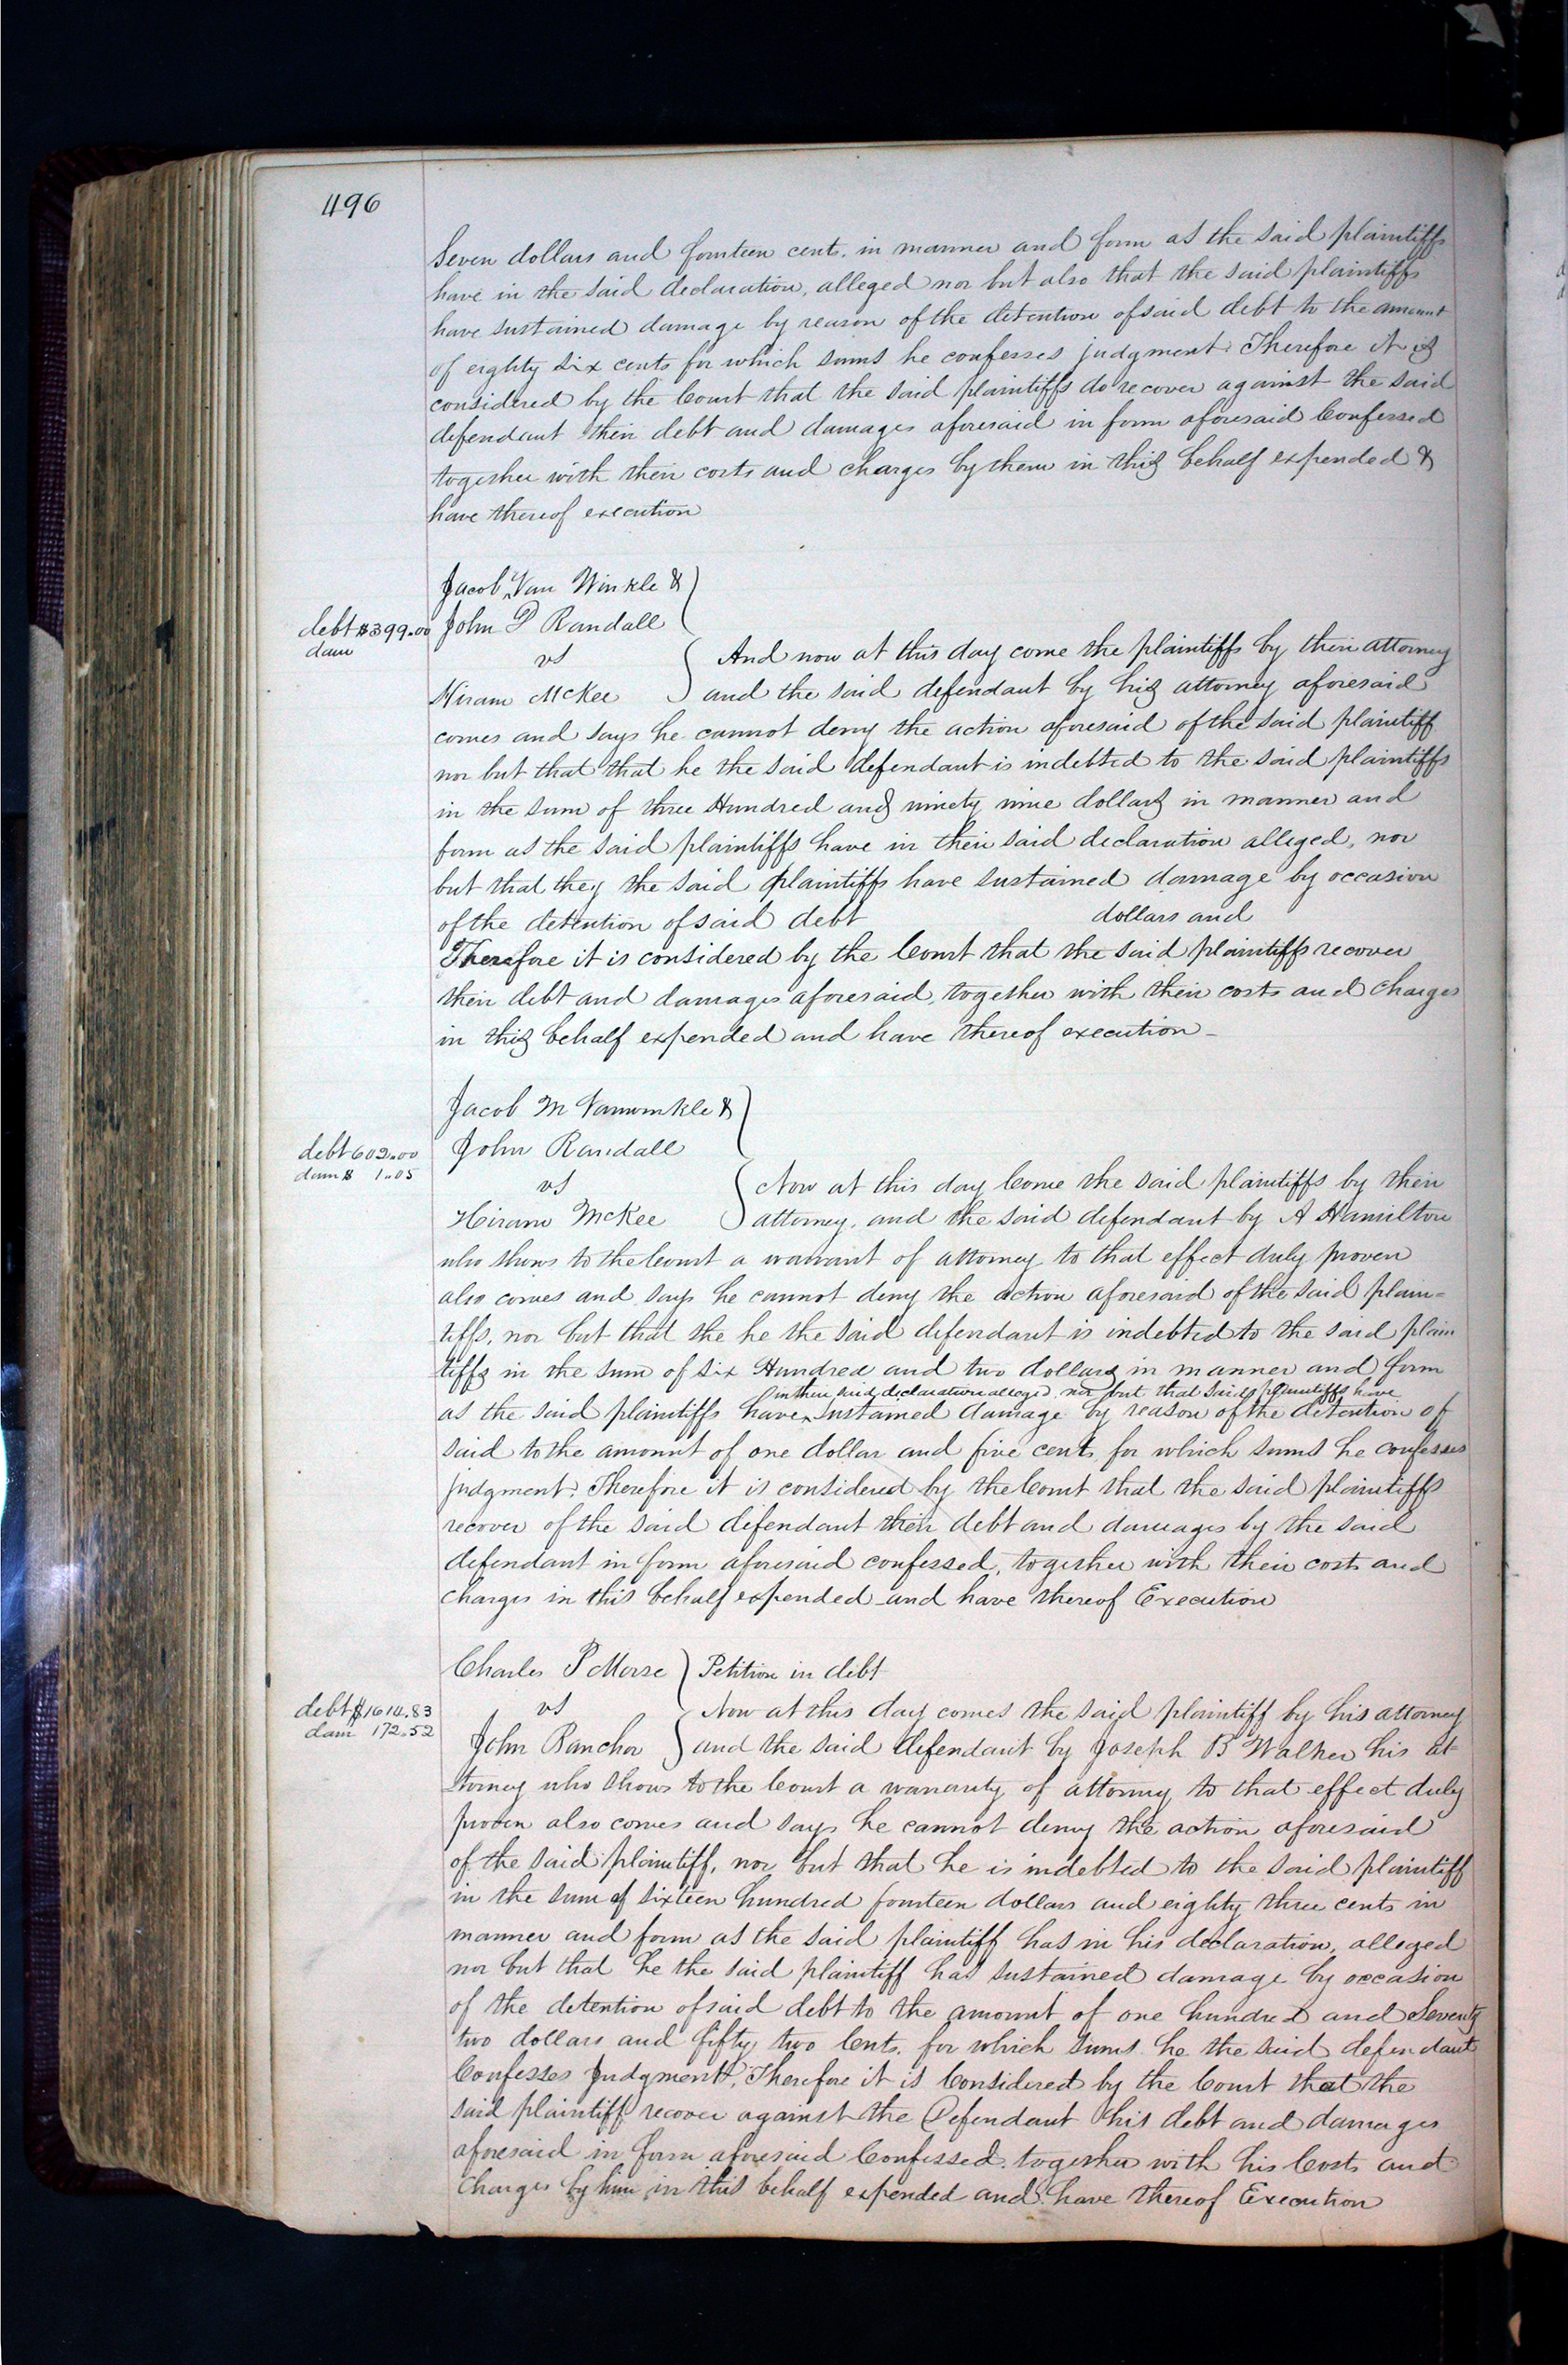 496
Seven dollars and fourteen cents. in manner and form as the said plaintiffs
have in the said declaration, alleged nor but also that the said plaintiffs
have sustained damage by reason of the detention of said debt to the amount
of eighty six cents for which sums he confesses judgment Therefore it is
considered by the Court that the said plaintiffs do recover against the said
defendant their debt and damages aforesaid in form aforesaid Confessed
together with their costs and charges by them in this behalf expended &
have thereof execution
Jacob Van Winkle &
debt $399.00 John P Randall
dam
vs And now at this day come the plaintiffs by their attorney
Hiram McKee and the said defendant by his attorney aforesaid
comes and says he cannot deny the action aforesaid of the said plaintiff
nor but that that he the said defendant is indebted to the said plaintiffs
in the sum of three Hundred and ninety nine dollars in manner and
form as the said plaintiffs have in their said declaration alleged, nor
but that they the said plaintiffs have sustained damage by occasion
of the detention of said debt dollars and
Therefore it is considered by the Court that the said plaintiffs recover
their debt and damages aforesaid, together with their costs and charges
in this behalf expended and have thereof execution -
Jacob M Vanwinkle &
debt 602.00 John Randall
dam $ 1.05
vs Now at this day Come the said plaintiffs by their
Hiram McKee attorney, and the said defendant by A Hamilton
who shows to the Court a warrant of attorney to that effect duly proven
also comes and says he cannot deny the action aforesaid of the said plain=
tiffs, nor but that she he the said defendant is indebted to the said plain
tiffs in the sum of six Hundred and two dollars in manner and form
in their said declaration alleged nor but that said plaintiffs have
as the said plaintiffs have sustained damage by reason of the detention of
said to the amount of one dollar and five cents for which sums he confesses
judgment. Therefore it is considered by the Court that the said plaintiffs
recover of the said defendant their debt and damages by the said
defendant in form aforesaid confessed, together with their costs and
charges in this behalf expended and have thereof Execution
Charles P Morse Petition in debt
debt $1614.83 vs Now at this day comes the said plaintiff by his attorney
dam 172.52 John Rancho and the said defendant by Joseph B Walker his at-
torney who shows to the Court a warranty of attorney to that effect duly
proven also comes and says he cannot deny the action aforesaid
of the said plaintiff, nor but that he is indebted to the said plaintiff
in the sum of sixteen hundred fourteen dollars and eighty three cents in
manner and form as the said plaintiff has in his declaration, alleged
nor but that he the said plaintiff has sustained damage by occasion
of the detention of said debt to the amount of one hundred and Seventy
two dollars and fifty two Cents. for which sums he the said defendant
Confesses Judgment, Therefore it is Considered by the Court that the
said plaintiff recover against the Defendant his debt and damages
aforesaid in form aforesaid Confessed. together with his Costs and
Charges by him in this behalf expended and have thereof Execution